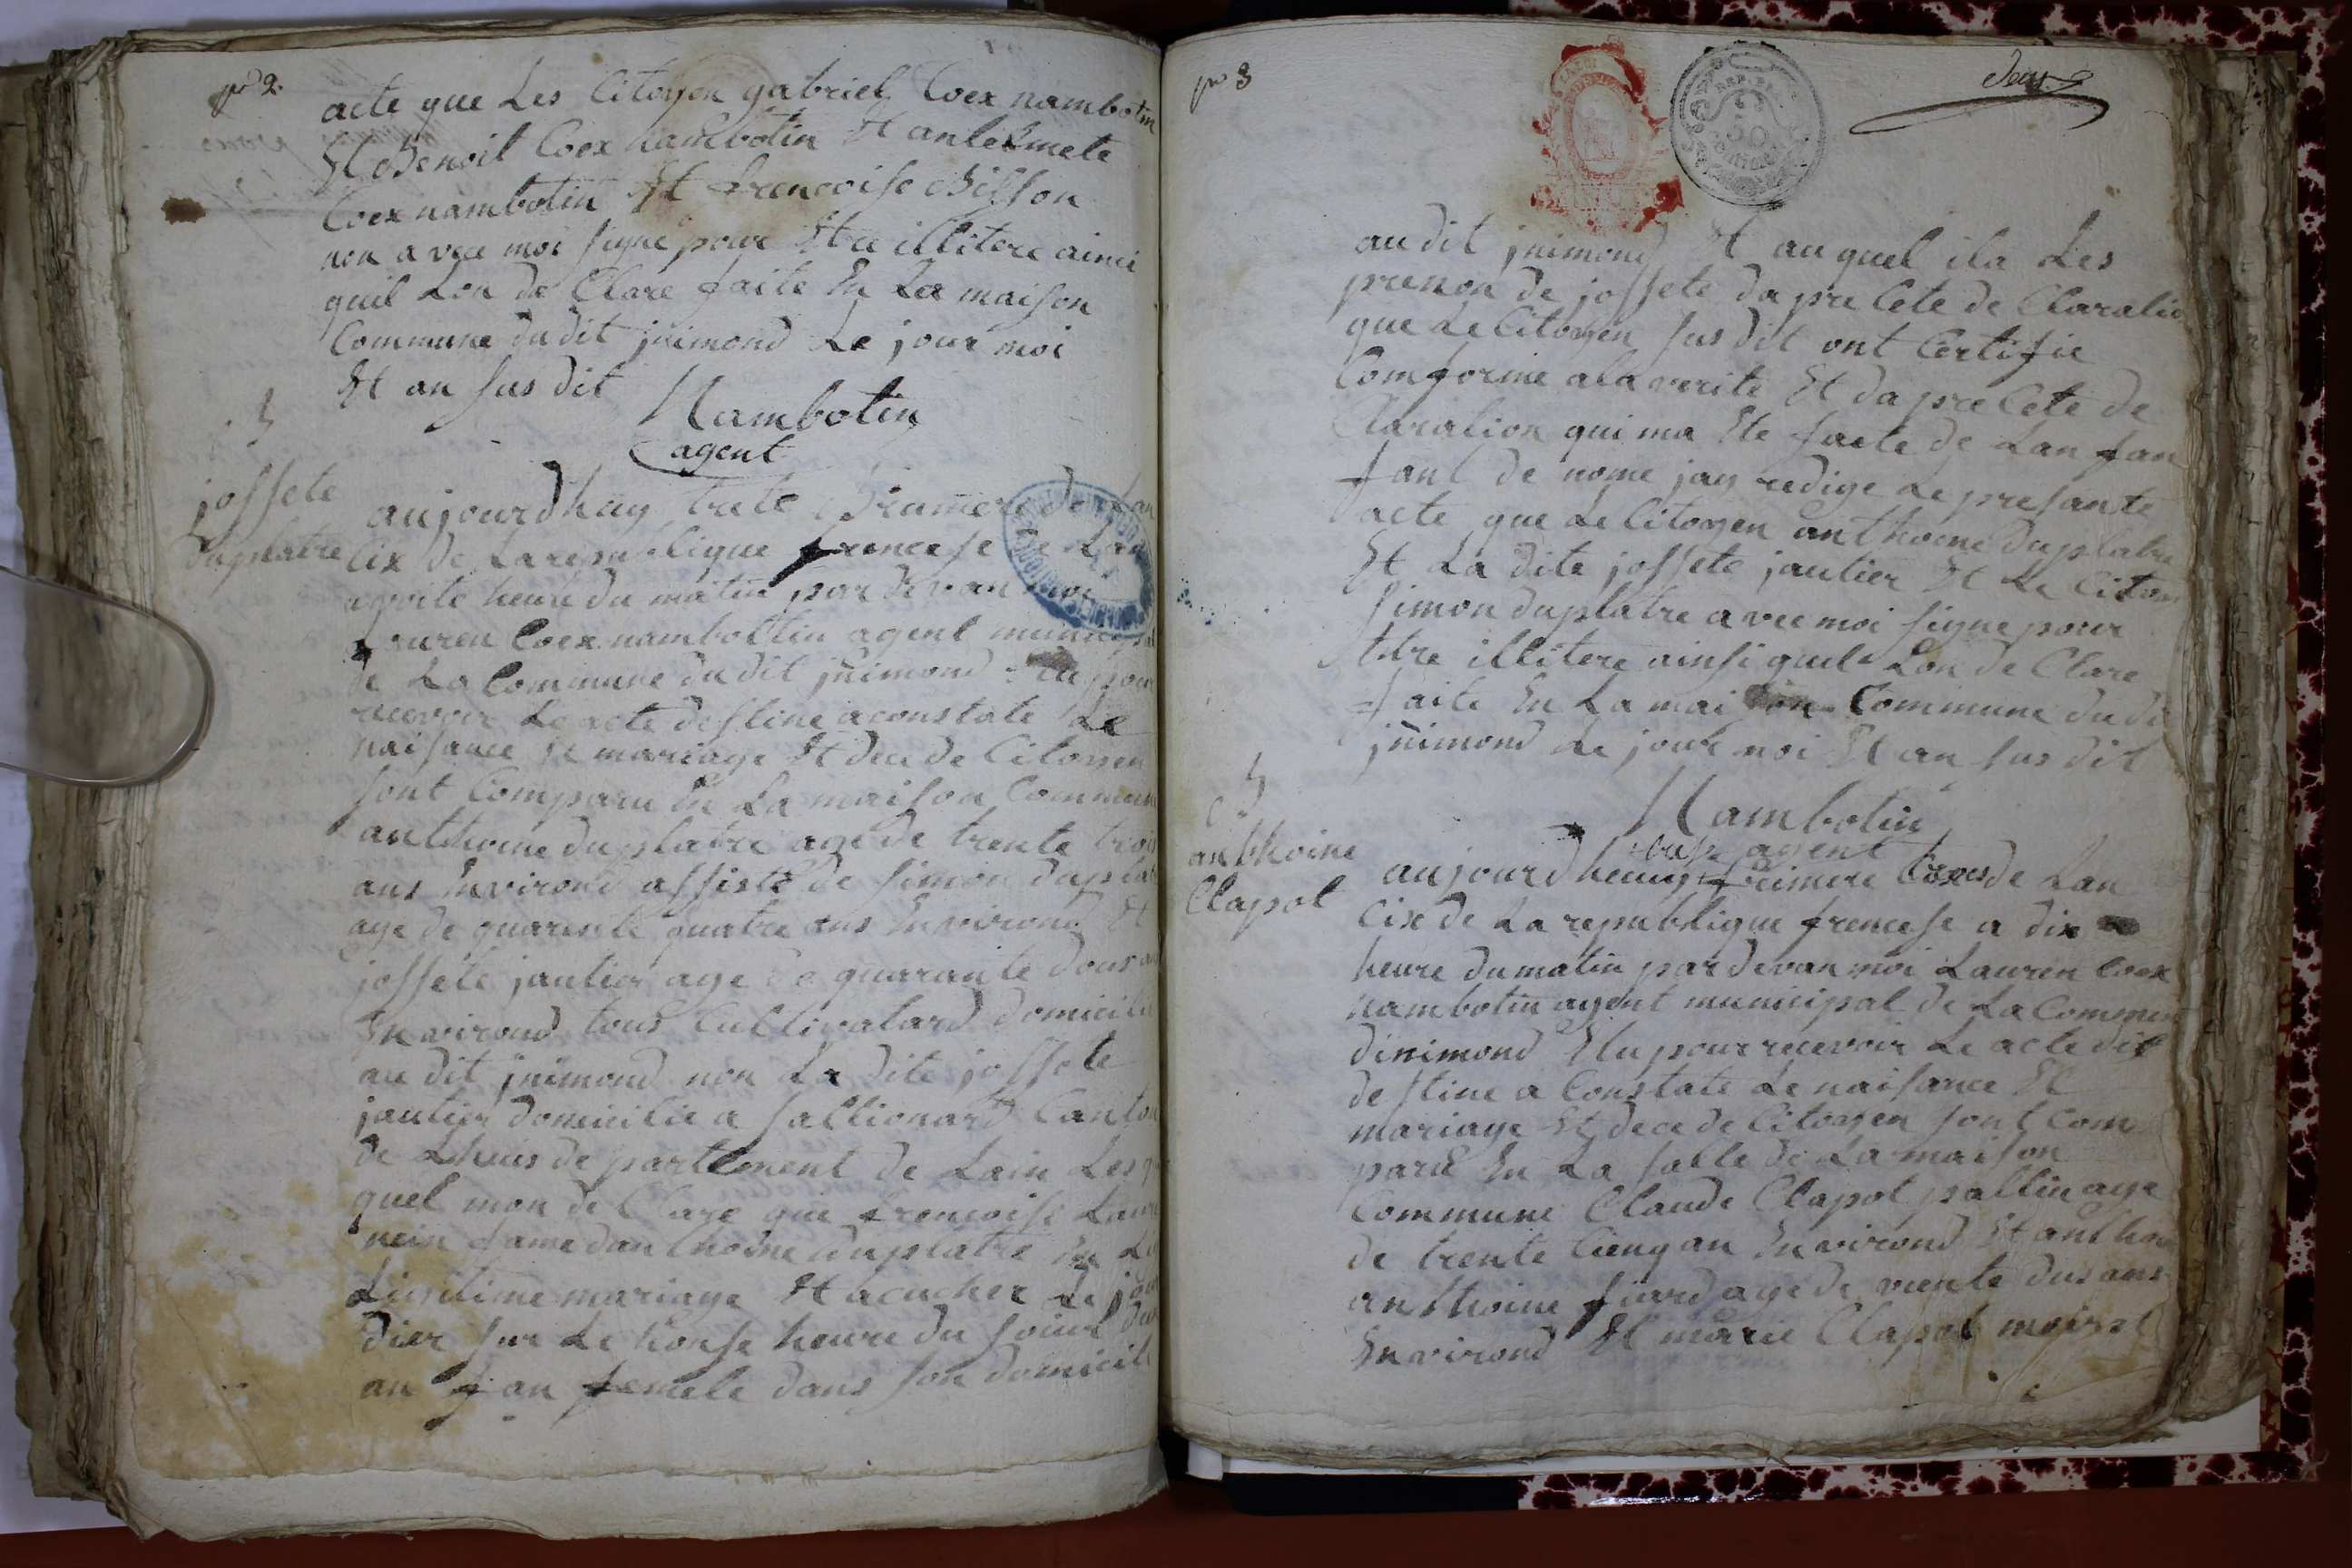 acte que Les Citoyen gabriel Coex nambotin
Et Benoit Coex nambotin Et antelmete
Coex nambotin Et frencoise Bisson
non a vec moi signe pour Etre illitere ainci
quil Lon de Clare faite En La maison
Commune du dit jnimond Le jour moi
Et an sus dit
Nambotin
agent
jossete
duplatre
aujourdhuy Brumere de Lan
six de La republique francese
heure du matin par de van moi
Lauren Coex nambottin agent municipal
de La Commune du dit jnimond Elu pour
recevoir Le acte destine a constate Le
naisance Et mariage Et dece de Citoyen
sont Comparu En La maison Commune
anthoine duplatre age de trente trois
ans Environd assiste de simon duplatre
age de quarente quatre ans Environd Et
jossete jantier age de quarante dous an
Environd tous Cultivatard domicilie
au dit jnimond non La dite jossete
jantier domicilie a sallionard Canton
de Lhuis de partement de Lain Les
quel mon de Clare que frencoise
fame danthoine duplatre En
Ligitime mariage Et acucher Le
dier sur Le honse heure du soiur
an fan femele dans son domicile
au dit jnimond Et au quel ila Les
prenon de jossete da pre Cete de Claration
que Le Citoyen sus dit ont Certifie
Comforme ala verite Et da pre Cete de
Claration qui ma Ete facte de Lan fan
fant de nome jay redige Le presante
acte que Le Citoyen anthoine duplatre
Et La dite jossete jantier Et Le Citoyen
simon duplatre a vec moi signe pour
Etre illitere ainsi quil Lon de Clare
faite En La maison Commune du dit
jnimond Le jour moi Et an sus dit
Nambotin
agent
anthoine
Clapot
aujourdheuy frimere de Lan
six de La republique frencese a dix
heure du matin par devan moi Lauren Coex
nambotin agent municipal de La Commune
dinimond Elu pour recevoir Le acte dit
destine a Constate Le naisance Et
mariage Et dece de Citoyen sont Com
paru En La salle de La maison
Commune Claude Clapot pallin age
de trente Cienq an Environd Et
anthoine fiard age de viente dus ans
Environd Et marie Clapot